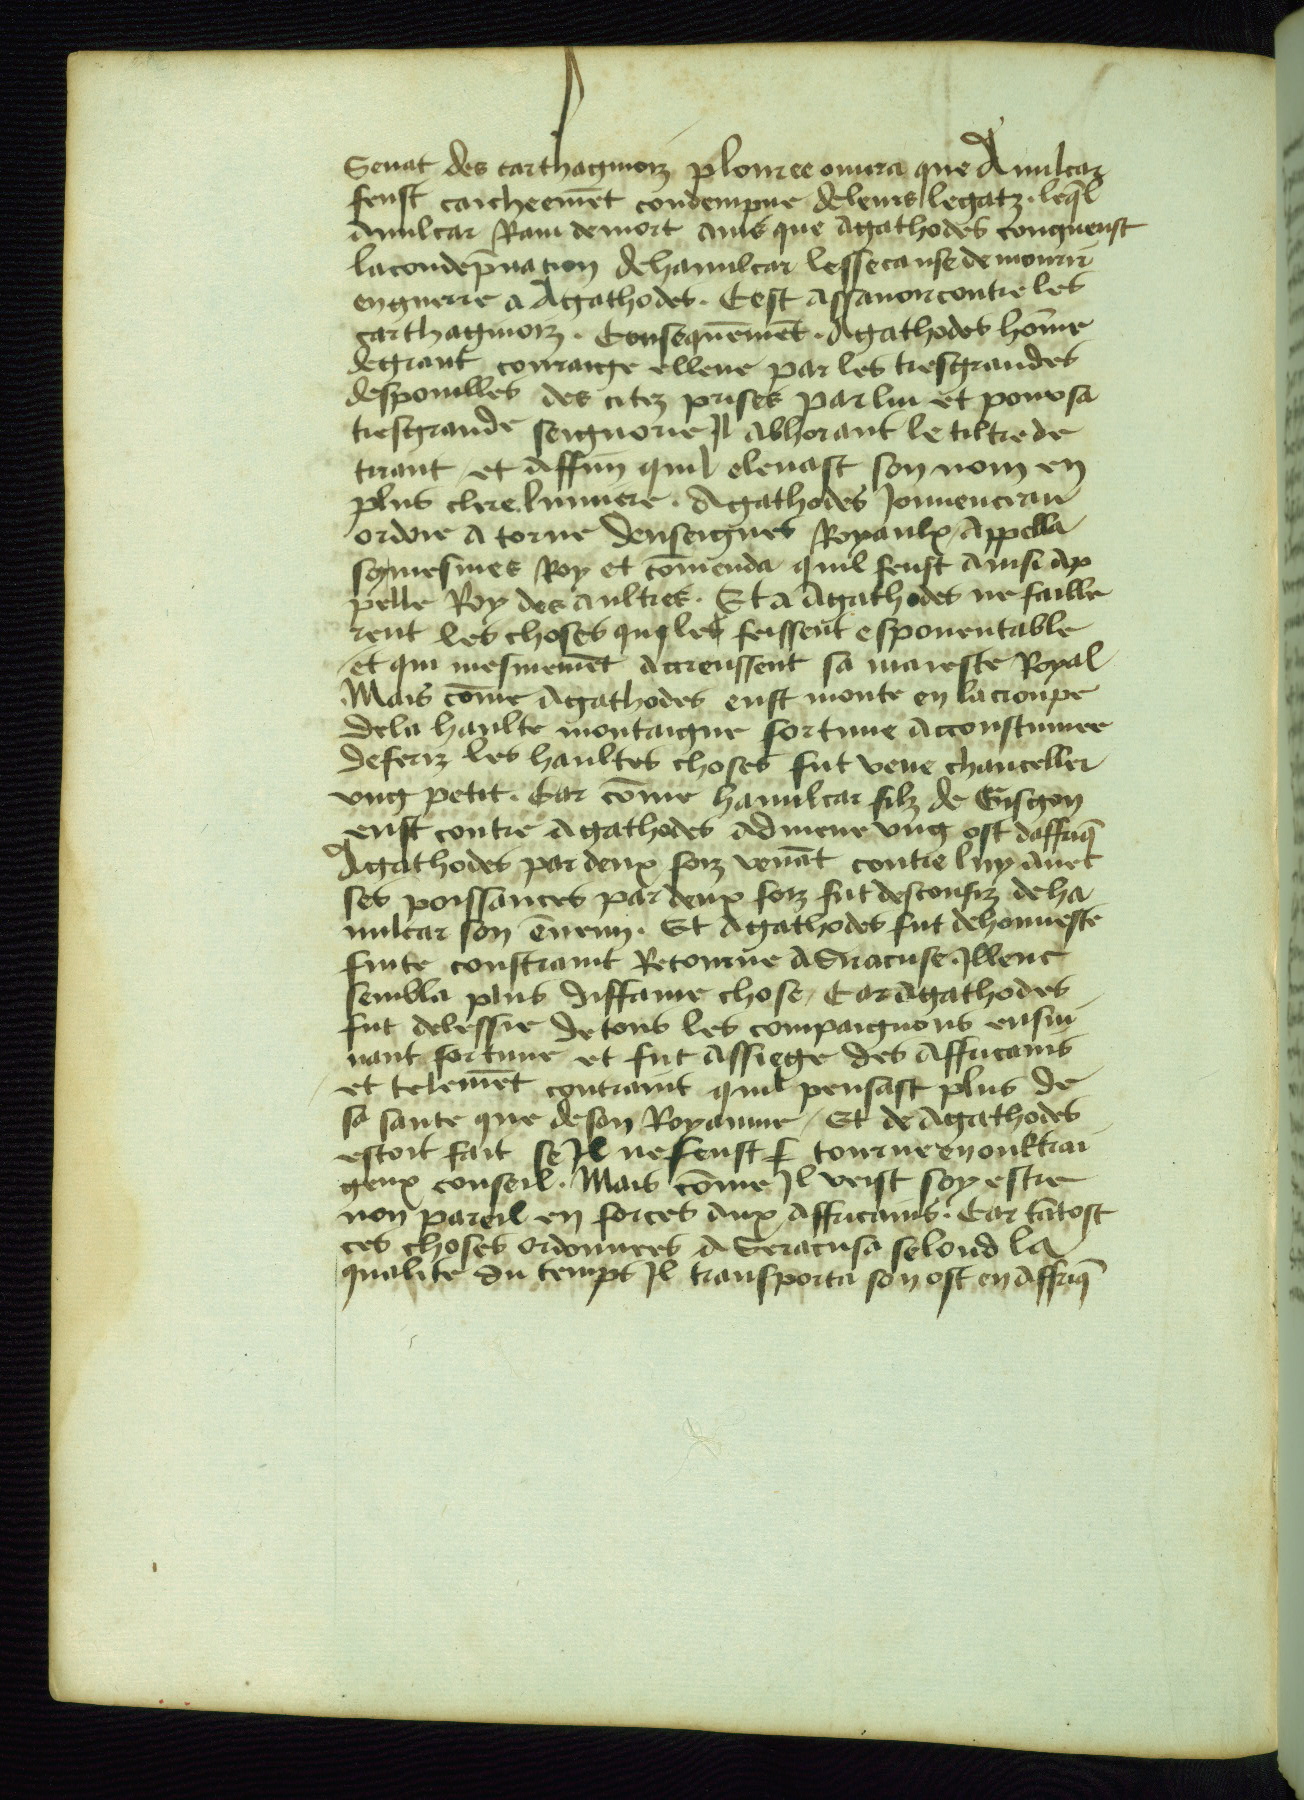 Senat des carthaginoiz plource ouura que Amilcar
feust caicheemēt condempne de leurs legatz . leq̄l
Amilcar Raui de mort ains que Agathodes congneust
la condēpnation de hamilcar lesse cause de mourir
en guerre a Agathodes . Cest assauoir contre les
carthaginoiz . Consequēmēt . Agathodes hom̄e
de grant couraige esleue par les tresgrandes
despouilles des citez prises par lui et pour sa
tresgrande seignorie Il abhorant le tiltre de
tirant et Affin quil eleuast son nom en
plus clere lumiere . Agathodes Jouuencrau
ordoie A torne denseignes Royaulx Appella
soymesmes Roy et cōmenda quil feust Ainsi Ap
pelle Roy des aultres . Et A Agathodes ne faille
rent les choses qui le feissent espouentable
et qui mesmemēt Accreussent sa maieste Royal
Mais cōme Agathodes eust monte en la croupe
de la haulte montaigne fortune Accoustumee
de feriz les haultes choses fut veue chanceller
vng petit . Car cōme hamilcar filz de Gisgon
eust contre Agathodes Admene vng ost daffriq̄
Agathodes par deux foiz venāt contre luy auec
ses poissances par deux foiz fut desconfiz de ha
milcar son ēnemi . Et Agathodes fut dehonneste
fuite constraint Retourne A Siracuse . Illenc
sembla plus Inffame chose , Car Agathodes
fut delessie de tous les compaignons ensui
uant fortune et fut Assiege des Affricains
et telemēt contraint quil pensast plus de
sa sante que de son Royaume , Et de Agathodes
estoit fait se Il ne feust tourne en oultrai
geux conseil . Mais cōme Il veist soy estre
non pareil en forces Aux Affricains . Car tātost
ces choses ordonnees A Seracusa selond la
qualite du temps Il transporta son ost en Affriq̄